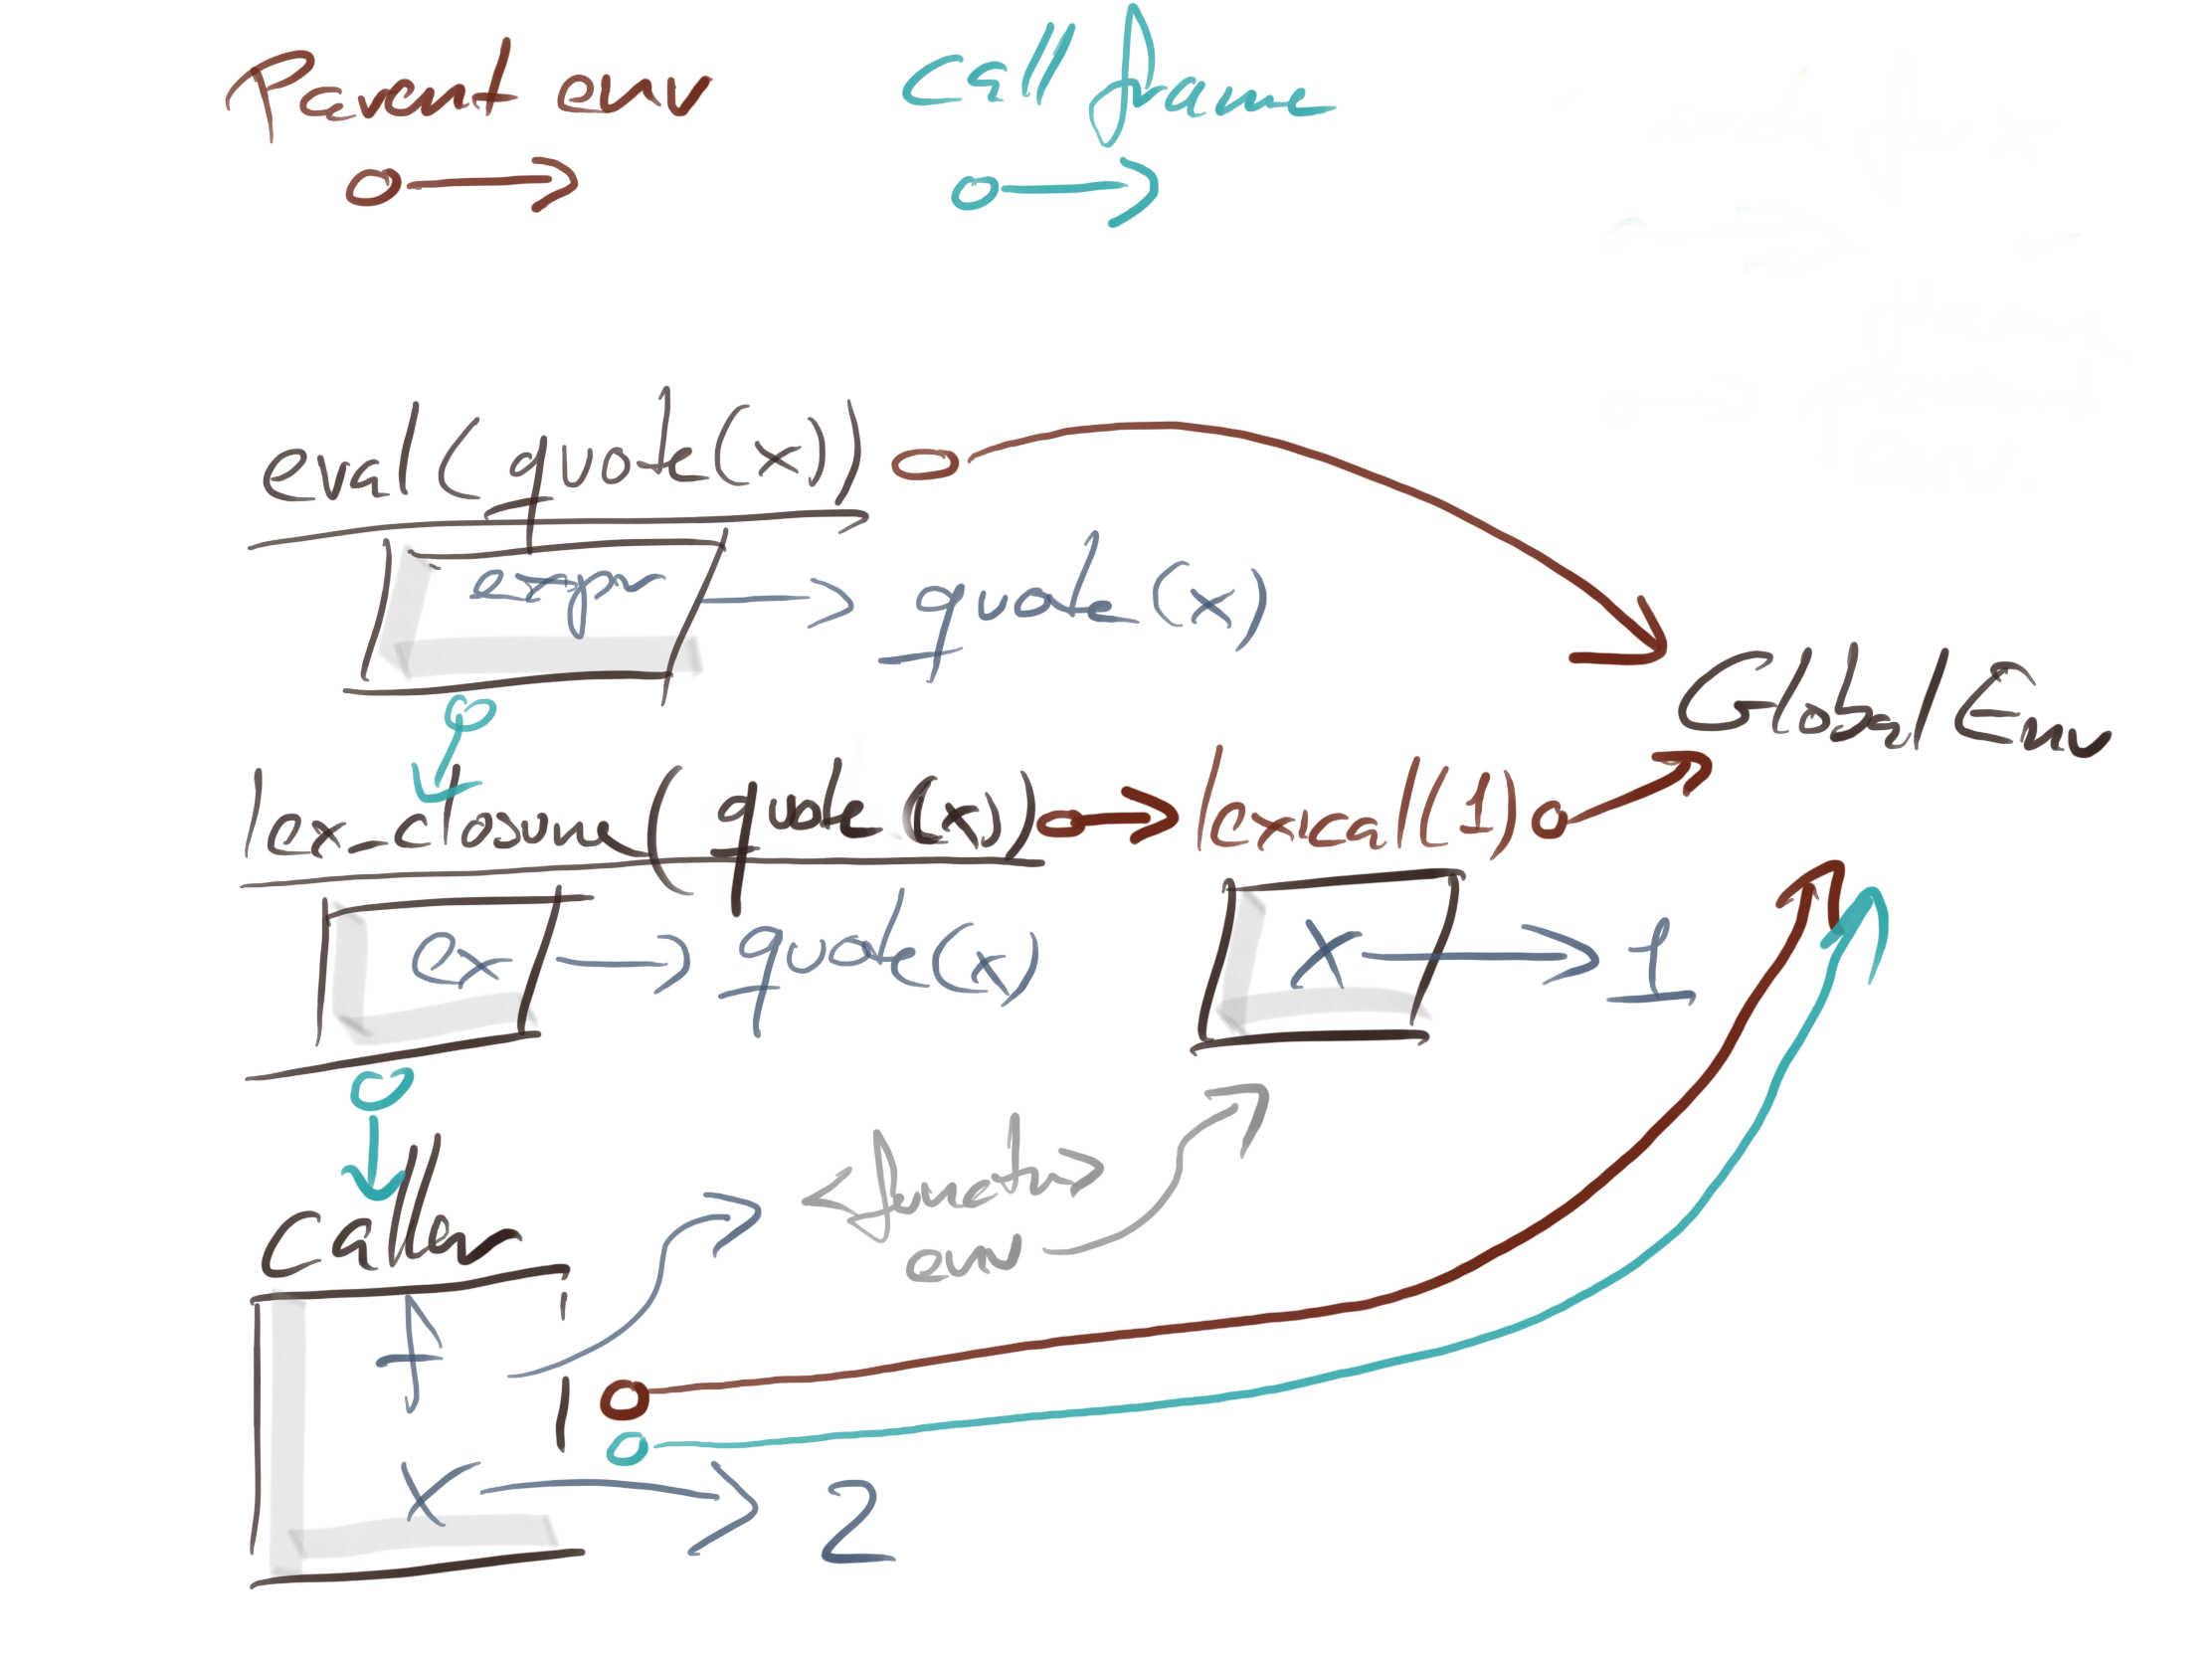 Parent env
call frame
eval(quote(x))
expr
quote(x)
GlobalEnv
lex_closure(quote(x))
lexical(1)
ex
quote(x)
x
1
<function>
env
caller
f
x
2